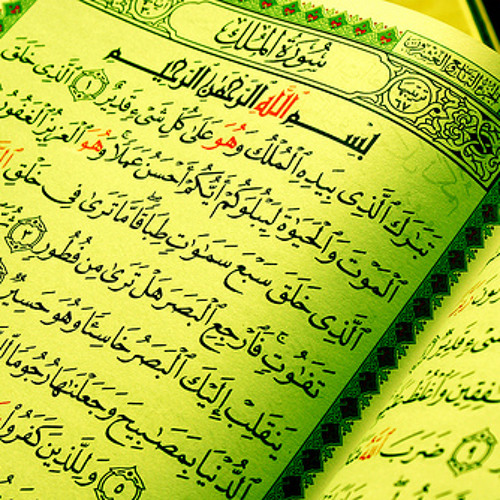 سُورَةُ الْمُلْكِ
بِسْمِ اللَّهِ الرَّحْمَٰنِ الرَّحِيمِ
تَبَٰرَكَ ٱلَّذِى بِيَدِهِ ٱلْمُلْكُ وَهُوَ عَلَىٰ كُلِّ شَىْءٍ قَدِيرٌ ١ ٱلَّذِى خَلَقَ
ٱلْمَوْتَ وَٱلْحَيَوٰةَ لِيَبْلُوَكُمْ أَيُّكُمْ أَحْسَنُ عَمَلًا وَهُوَ ٱلْعَزِيزُ ٱلْغَفُورُ
ٱلَّذِى خَلَقَ سَبْعَ سَمَٰوَٰتٍ طِبَاقًا مَّا تَرَىٰ فِى خَلْقِ
تَفَٰوُتٍ فَٱرْجِعِ ٱلْبَصَرَ هَلْ تَرَىٰ مِن فُطُورٍ ٣
يَنقَلِبْ إِلَيْكَ ٱلْبَصَرُ خَاسِئًا وَهُوَ حَسِيرٌ
ٱلدُّنْيَا بِمَصَٰبِيحَ وَجَعَلْنَٰهَا رُجُومًا
٥ وَلِلَّذِينَ كَفَرُوا۟
ضَرَبَ ٱللَّهُ